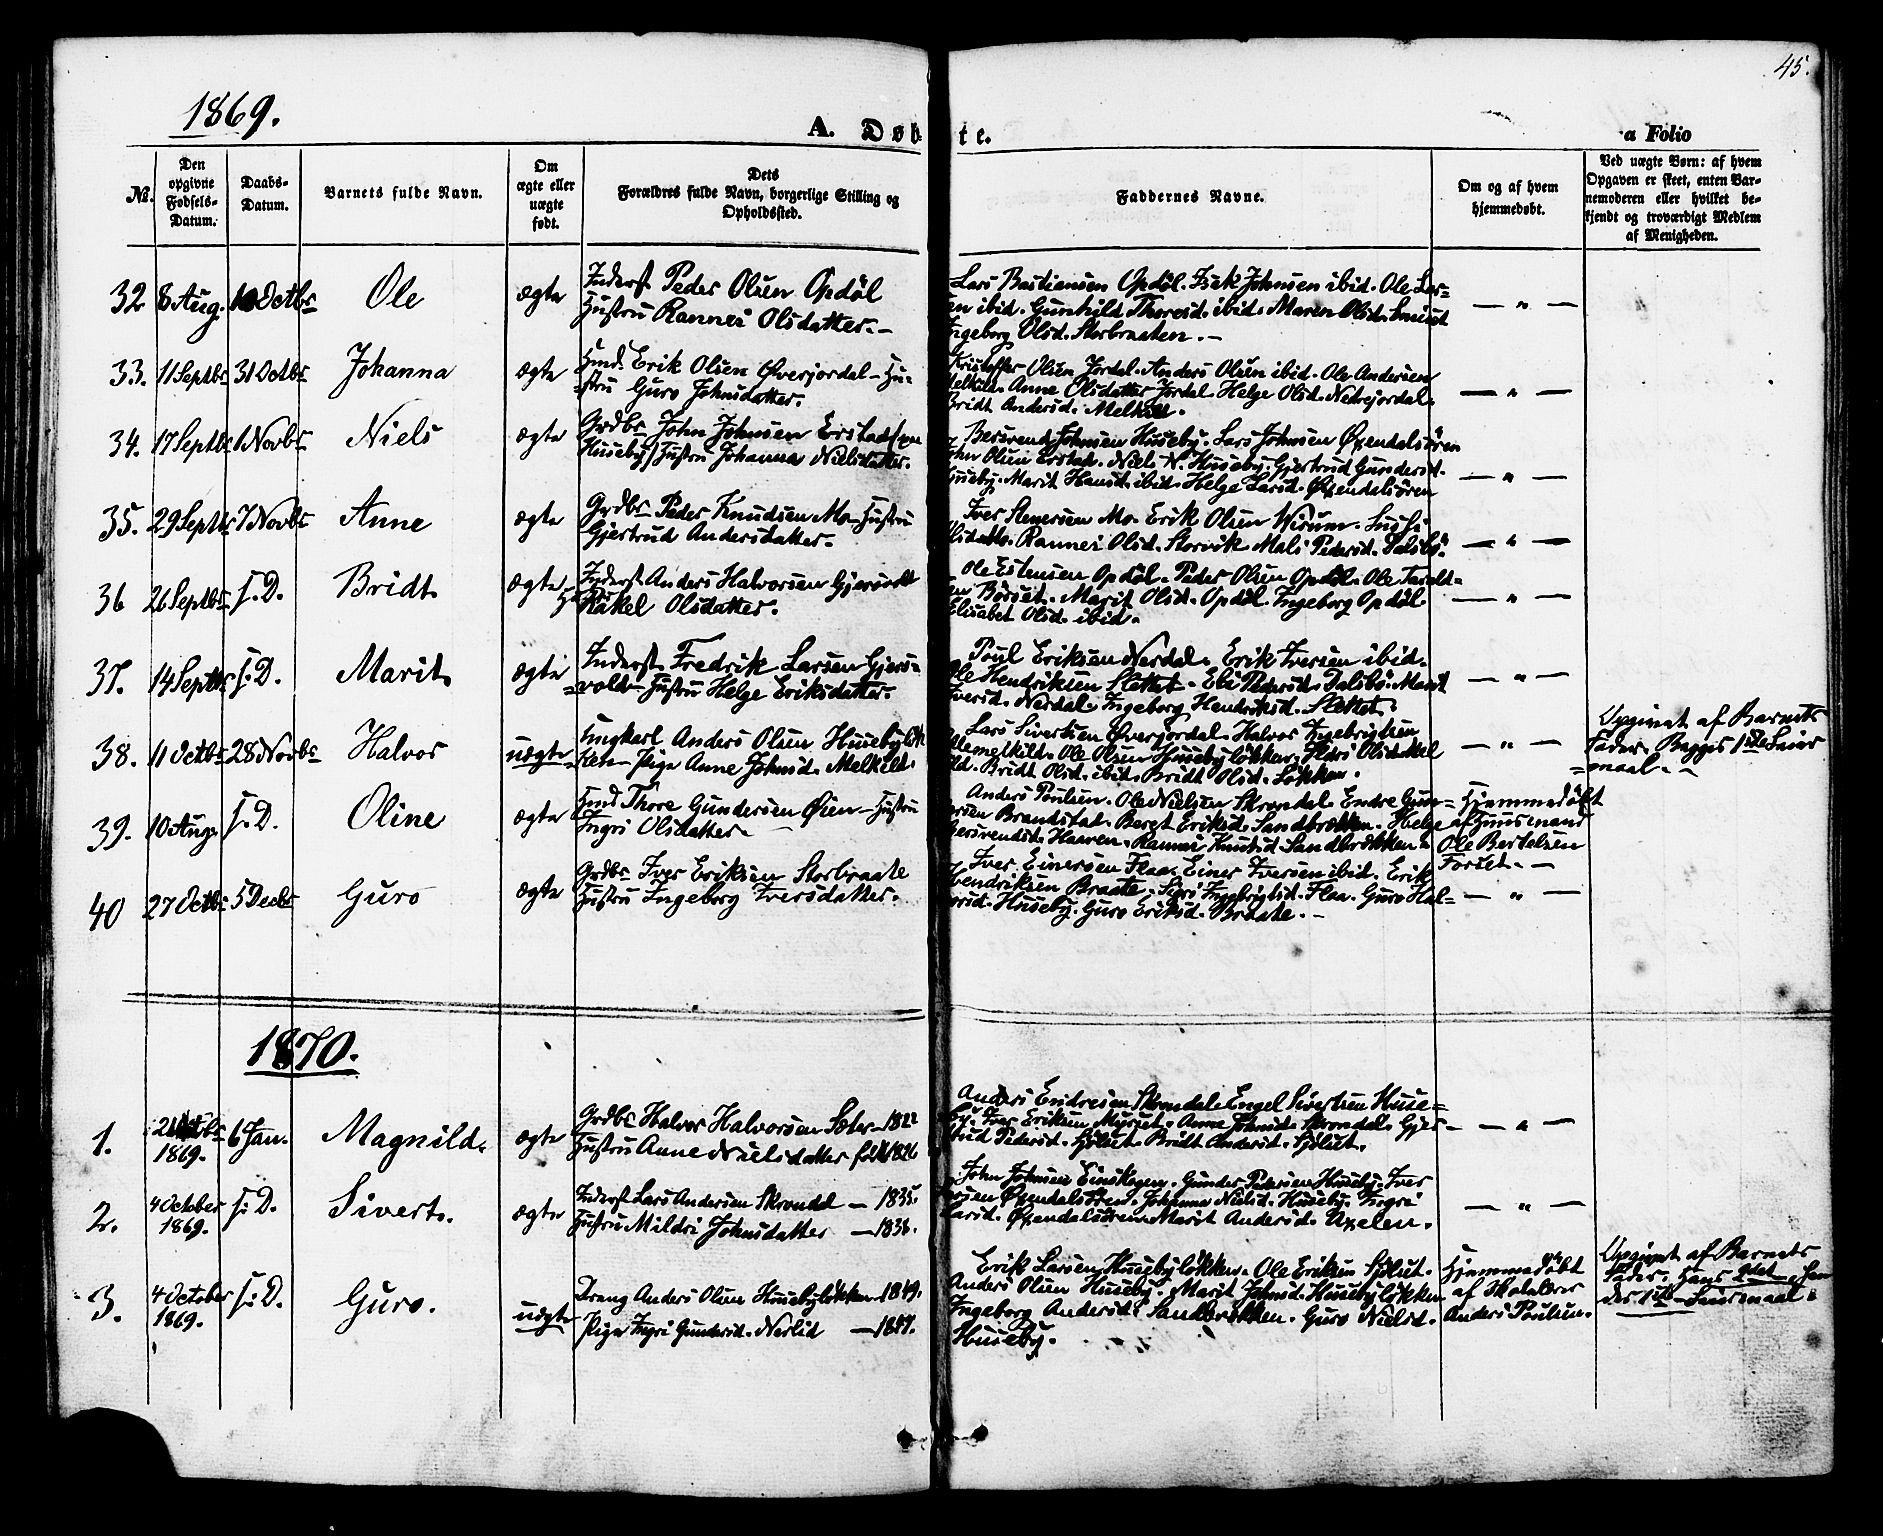 45.
1869.
A. Døbte.
a Folio
No.
Den opgivne Fødsels-Datum.
Daabs-Datum.
Barnets fulde Navn.
Om ægte eller uægte født.
Dets Forældres fulde Navn, borgerlige Stilling og Opholdssted.
Faddernes Navne.
Om og af hvem hjemmedøbt.
Ved uægte Børn: af hvem Opgaven er skeet, enten Barnemoderen eller hvilket bekjendt og troværdigt Medlem af Menigheden.
32 8 Aug. 10 Octbr Ole ægte
Inderst Peder Olsen Opdøl
Hustru Rannei Olsdatter. -
Lars Bastiansen Opdøl. Isak Johnsen ibid. Ole Lar=
en ibid. Gunhild Thoresd. ibid. Maren Olsd.
Ingeborg Olsd. Storbraaten. -
— " —
33. 11 Septbr 31 Octbr Johanna ægte
Hmd. Erik Olsen Øverjordal - Hu=
=stru Guro Johnsdatter.
Kristoffer Olsen Jordal. Anders Olsen ibid. Ole Andersen
Melkild. Anne Olsdatter Jordal. Helge Olsd. Nedrejordal.
Bridt Andersd. Melkild.
— " —
34. 17 Septbr 1 Novbr Niels ægte
Grdbr John Johnsen Erstad
Huseby/ Hustru Johanna Nielsdatter.
Bersvend Johnsen Huseby. Lars Johnsen Øxendalsøren
John Olsen Erstad. Niels N. Huseby. Gjertrud Gundersd.
Huseby. Marit Hansd. ibid. Helge Larsd. Øxendalsøren
— " —
35. 29 Septbr 7 Novbr Anne ægte
Grdbr Peder Knudsen Mo - Hustru
Gjertrud Andersdatter.
Iver Stenersen Mo. Erik Olsen Wirum.
Olsd. Mo. Rannei Olsd. Storvik Mali Pedersd. Dalsbø.
— " —
36 26 Septbr s. D. Bridt. ægte
Inderst Anders Halvorsen Gjersvoldt
Hustru Rakel Olsdatter.
Ole Estensen Opdøl. Peder Olsen Opdøl. Ole Tarald=
en Børset. Marit Olsd. Opdøl. Ingeborg Opdøl.
Elisabet Olsd. ibid.
— " —
37. 14 Septbr s. D. Marit. ægte
Inderst Fredrik Larsen Gjers=
=vold - Hustru Helge Eriksdatter.
Poul Eriksen Nerdal. Erik Iversen ibid.
Ole Hendriksen Slettet. Eli Pedersd. Dalsbø. Marit
Iversd. Nerdal. Ingeborg Hendriksd. Slettet.
— " —
38. 11 Octbr 28 Novbr Halvor uægte
Ungkarl Anders Olsen Husebyløk
ken - Pige Anne Johnsd. Melkild.
Lars Sivertsen Øverjordal. Halvor Ingebrigtsen
Melkild. Ole Olsen Husebyløkken. Olsd. Melkild
Bridt Olsd. ibid. Bridt Olsd. Løkken.
— " —
Opgivet af Barnets
Fader. Begges 1ste Leier
=maal. -
39. 10 Aug. s. D. Oline ægte
Hmd Thore Gundersen Øien - Hustru
Ingri Olsdatter -
Anders Poulsen. Ole Nielsen Skrondal. Endre Gun=
ersen Brandstad. Beret Eriksd. Sandbrækken. Helge
Bersvendsd. Haaven. Rannei Knudsd. Sandbrækken.
Hjemmedøbt
af Huusmand
Ole Bertelsen
Forset. -
40 27 Octbr 5 Decbr Guro ægte
Grdbr Iver Eriksen Storbraate
Hustru Ingeborg Iversdatter.
Iver Einersen Flaa. Einer Iversen ibid. Erik
Hendriksen Braate. Sigri Ingebrigtsd. Flaa. Guro Hal=
vorsd. Huseby. Guro Eriksd. Braate. -
— " —
1870.
1. 1869. 6 Jan. Magnild. ægte
Grdbr Halvor Halvorsen Sæter - 1822
Hustru Anne Nielsdatter født 1826
Anders Endresen Skrondal. Engel Sivertsen Huse=
by. Iver Eriksen Myrset. Anne Johnsd. Skrondal. Gjer=
trud Pedersd. Sjølset. Bridt Andersd. Sjølset.
— " —
2. 4 October 1869. s. D. Sivert. ægte
Inderst Lars Andersen Skrondal — 1835.
Hustru Mildri Johnsdatter — 1836.
John Johnsen Einskogen. Gunder Pedersen Huseby. Iver
Larsen Øxendalsøren. Johanna Nielsd. Huseby. Ingri
Larsd. Øxendalsøren. Marit Andersd. Axelen.
— " —
3. 4 October 1869. s. D. Guro. uægte
Dreng Anders Olsen Husebyløkken - 1849.
Pige Ingri Gundersd. Nerlid — 1847.
Erik Larsen Husebyløkken. Ole Eriksen Sjølset.
Anders Olsen Huseby. Marit Johnsd. Husebyløkken
Ingeborg Andersd. Sandbrækken. Guro Nielsd.
Huseby.
Hjemmedøbt
af Skolelærer
Anders Poulsen.
Opgivet af Barnets
Fader. Hans 2det, hen
des 1ste Leiermaal.